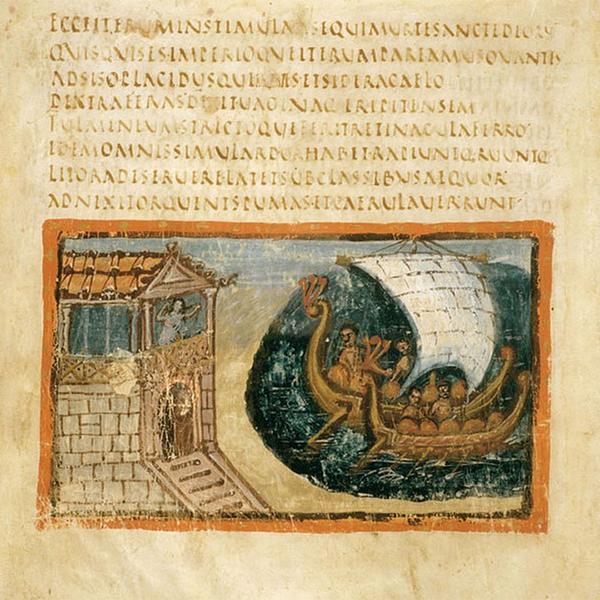 ECCEITERUMINSTIMULATSEQUIMURTESANCTEDEORUM
QUISQUISESIMPERIOQUEITERUMPAREAMUSOVANTES
ADSISOPLACIDUSQUEIUUESETSIDERACAELO
DEXTRAFERASDIXITUAGINAQ·ERIPITENSEM
FULMINEUMSTRICTOQUEFERITRETINACULAFERRO
IDEMOMNISSIMULARDORHABETRAPIUNTQ·RUUNTQ
LITORADESERUERELATETSUBCLASSIBUSAEQUOR
ADNIXITORQUENTSPUMASETCAERULAUERRUNT